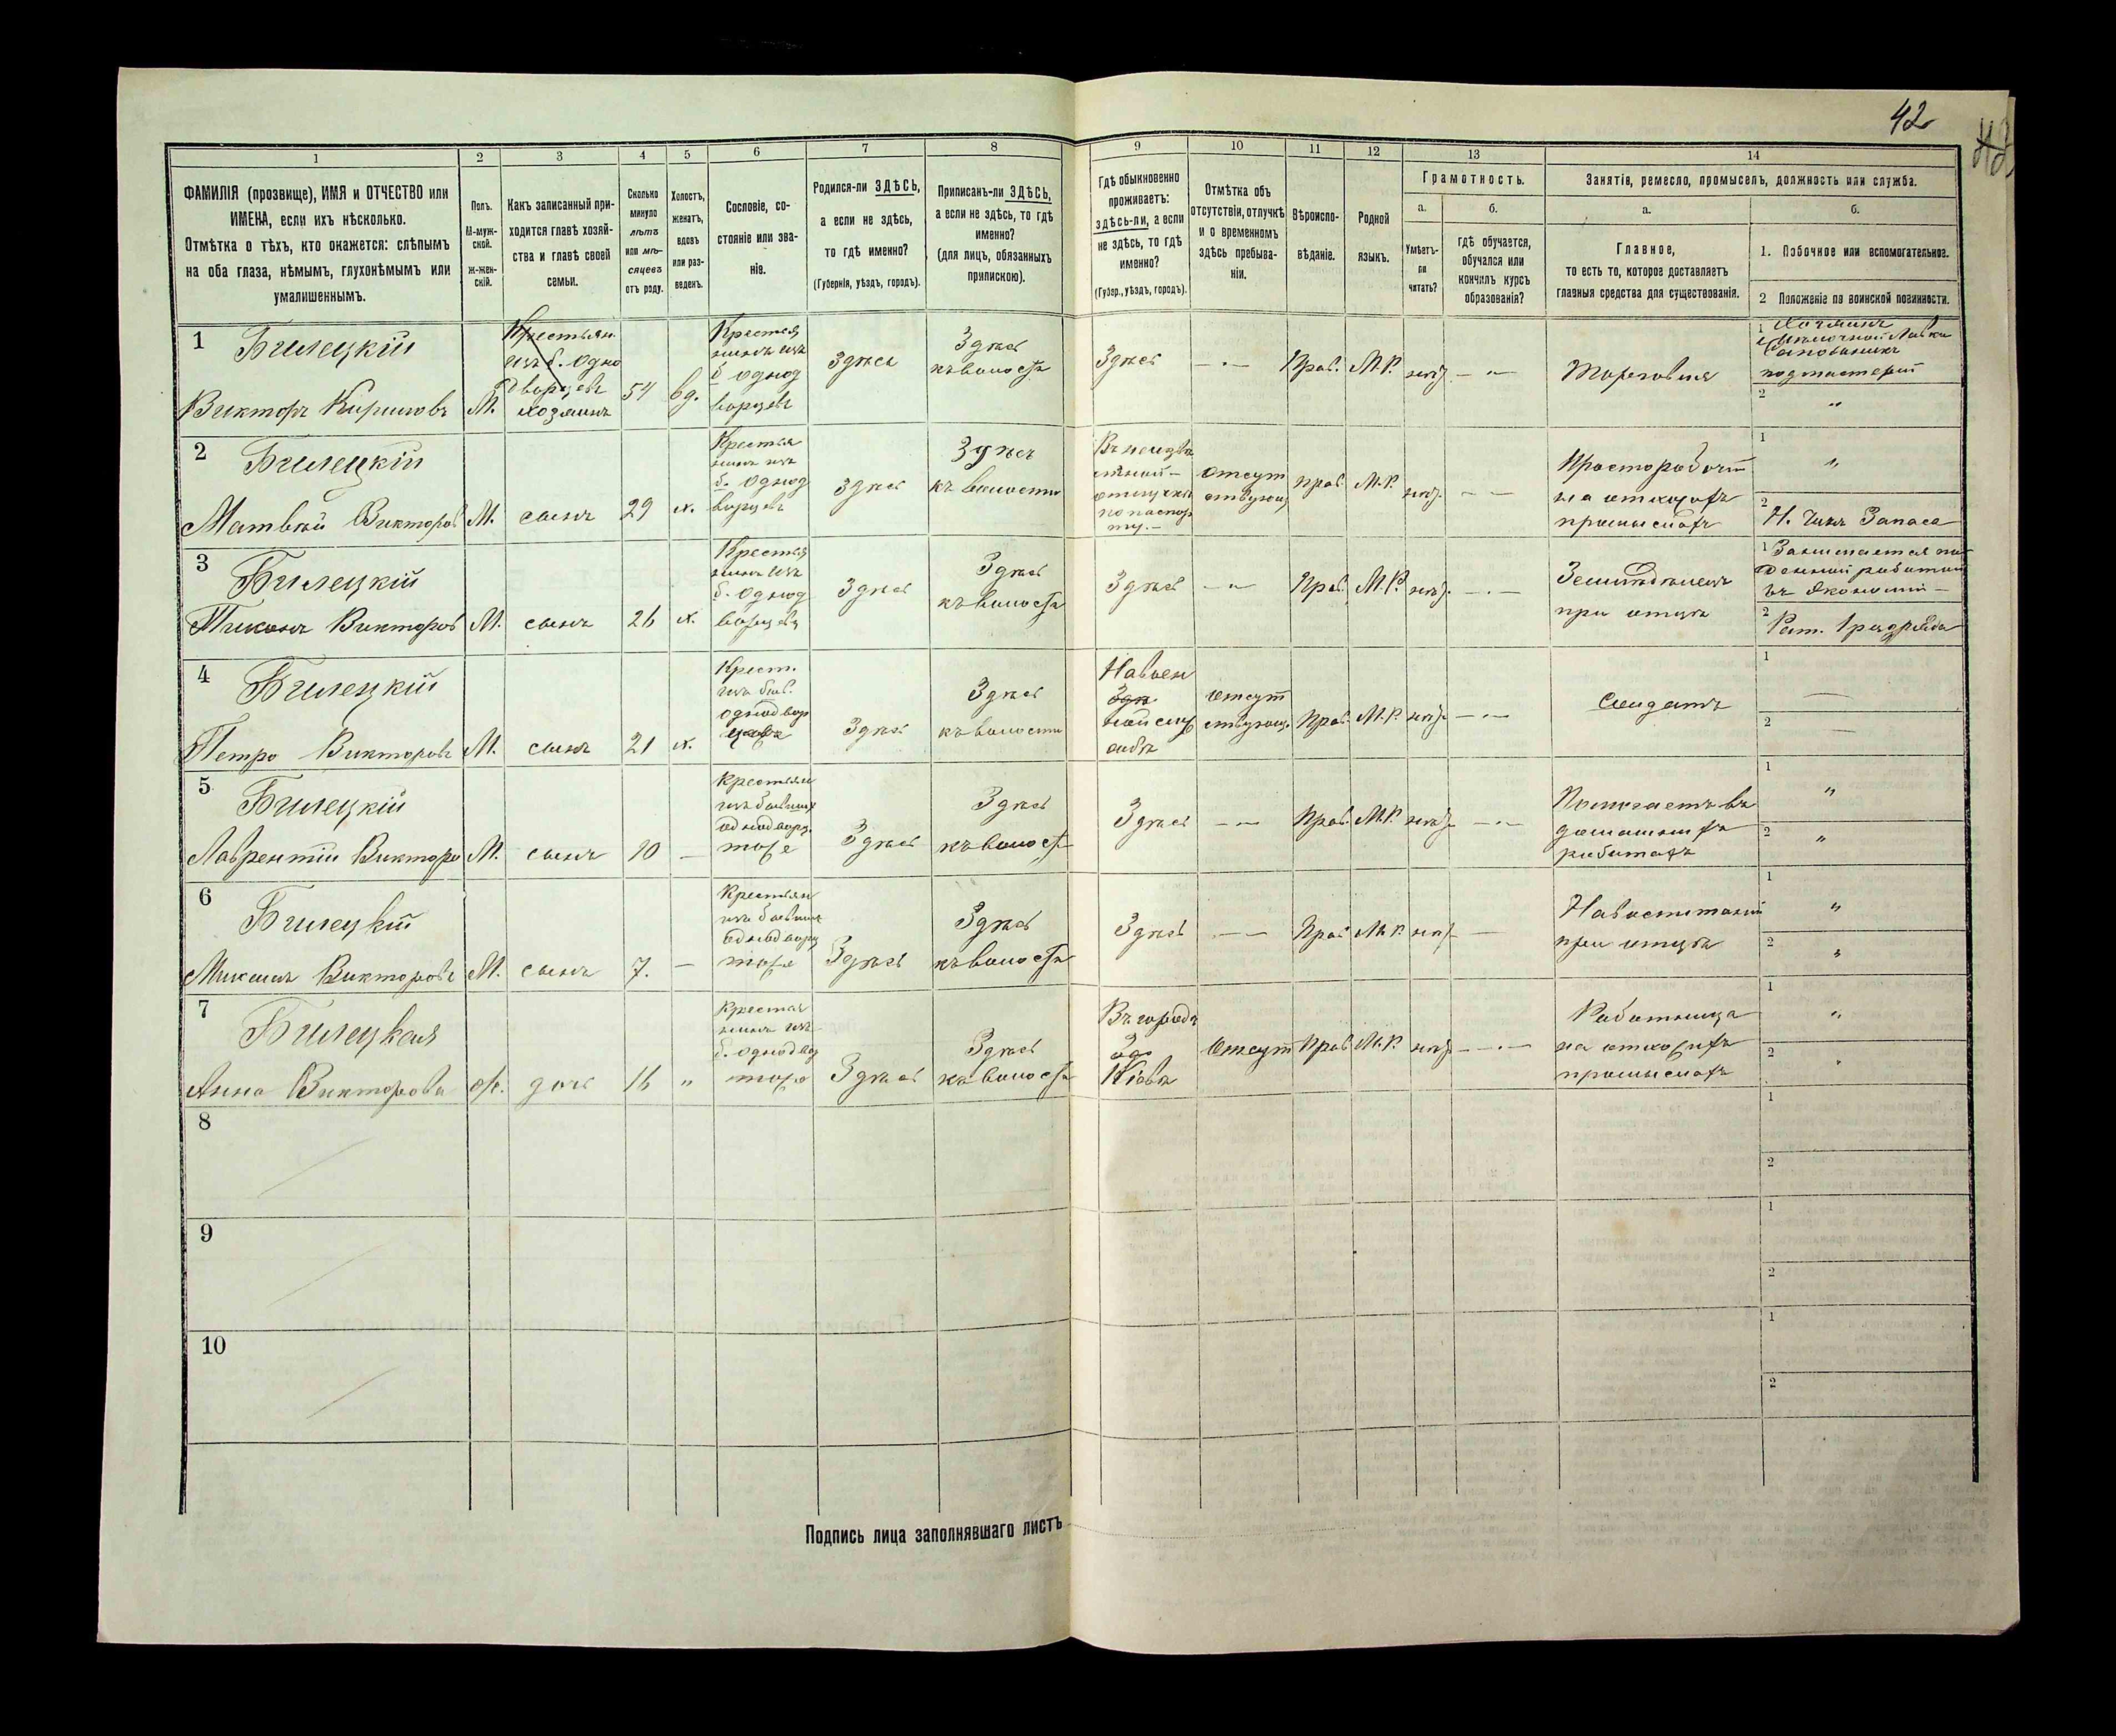 42
1
2
3
4
5
6
7
8
9
10
11
12
13
14
ФАМИЛІЯ (прозвище), ИМЯ и ОТЧЕСТВО или
ИМЕНА, если ихъ нѣсколько.
Отмѣтка о тѣхъ, кто окажется: слѣпымъ
на оба глаза, нѣмымъ, глухонѣмымъ или
умалишеннымъ.
Полъ.
М-муж-
ской.
Ж-жен-
скій.
Какъ записанный при-
ходится главѣ хозяй-
ства и главѣ своей
семьи.
Сколько
минуло
лѣтъ
или мѣ-
сяцевъ
отъ роду.
Холостъ,
женатъ,
вдовъ
или раз-
веденъ.
Сословіе, со-
стояніе или зва-
ніе.
Родился-ли ЗДѢСЬ,
а если не здѣсь,
то гдѣ именно?
(Губернія, уѣздъ, городъ).
Приписанъ-ли ЗДѢСЬ,
а если не здѣсь, то гдѣ
именно?
(для лицъ, обязанныхъ
припискою).
Гдѣ обыкновенно
проживаетъ:
здѣсь-ли, а если
не здѣсь, то гдѣ
именно?
(Губер., уѣздъ, городъ).
Отмѣтка объ
отсутствіи, отлучкѣ
и о временномъ
здѣсь пребыва-
ніи.
Вѣроиспо-
вѣданіе.
Родной
языкъ.
Грамотность.
а.
б.
Умѣетъ-
ли
читать?
гдѣ обучается,
обучался или
кончилъ курсъ
образованія?
Занятіе, ремесло, промыселъ, должность или служба.
а.
б.
Главное,
то есть то, которое доставляетъ
главныя средства для существованія.
1. Побочное или вспомогательное.
2 Положеніе по воинской повинности.
1
Билецкій
Викторъ Кириловъ
М.
Крестьян.
изъ б. Одно
дворцевъ
хозяинъ
54
вд.
Крестья
нинъ изъ
б. однод
ворцевъ
Здѣсь
Здѣсь
къ волости
Здѣсь
— " —
Прав.
М.Р.
нѣт
— " —
Торговля
1
Лавки
2
"
2
Билецкій
Матвѣй Викторов
М.
сынъ
29
х.
Крестья
нинъ изъ
б. однод
ворцевъ
Здѣсь
Здѣсь
къ волости
Въ неизвѣ
стной
отлучкѣ
по паспор
ту.—
Отсут
ствующ
Прав.
М.Р.
нѣт.
— —
Чернорабочій
на отхожихъ
промыслахъ
1
"
2
Н. Чинъ Запаса
3
Билецкій
Тихонъ Викторов
М.
сынъ
26
х.
Крестья
нинъ изъ
б. однод
ворцевъ
Здѣсь
Здѣсь
къ волости
Здѣсь
— " —
Прав.
М.Р.
нѣт.
— . —
Земледѣлецъ
при отцѣ
1
Занимается по
денной работой
въ Экономіи —
2
Рат. 1 разряда
4
Билецкій
Петро Викторовъ
М.
сынъ
21
х.
Крест.
изъ быв.
однодвор
цевъ
Здѣсь
Здѣсь
къ волости
На воен
ной служ
бѣ
Отсут
ствующ.
Прав.
М.Р.
нѣт.
— " —
Солдатъ
1
2
5
Билецкій
Лаврентій Викторо
М.
сынъ
10
—
Крестьян
изъ бывших
однодворц.
тоже
Здѣсь
Здѣсь
къ волост
Здѣсь
— " —
Прав.
М.Р.
нѣт.
— " —
Помогаетъ въ
домашнихъ
работахъ
1
"
2
"
6
Билецкій
Викторовъ
М.
сынъ
7.
—
Крестьян
изъ бывших
однодворц
тоже
Здѣсь
Здѣсь
къ волости
Здѣсь
— —
Прав
М.Р.
нѣт
—
На воспитаніи
при отцѣ
1
"
2
"
7
Билецкая
Анна Викторова
ж.
дочь
16
"
Крестья
нинъ изъ
б. однодво
тоже
Здѣсь
Здѣсь
къ волости
Въ городѣ
Кіевѣ
Отсут
Прав
М.Р.
нѣт.
— . —
Работница
на отхожихъ
промыслахъ
1
"
2
"
8
1
2
9
1
2
10
1
2
Подпись лица заполнявшаго листъ